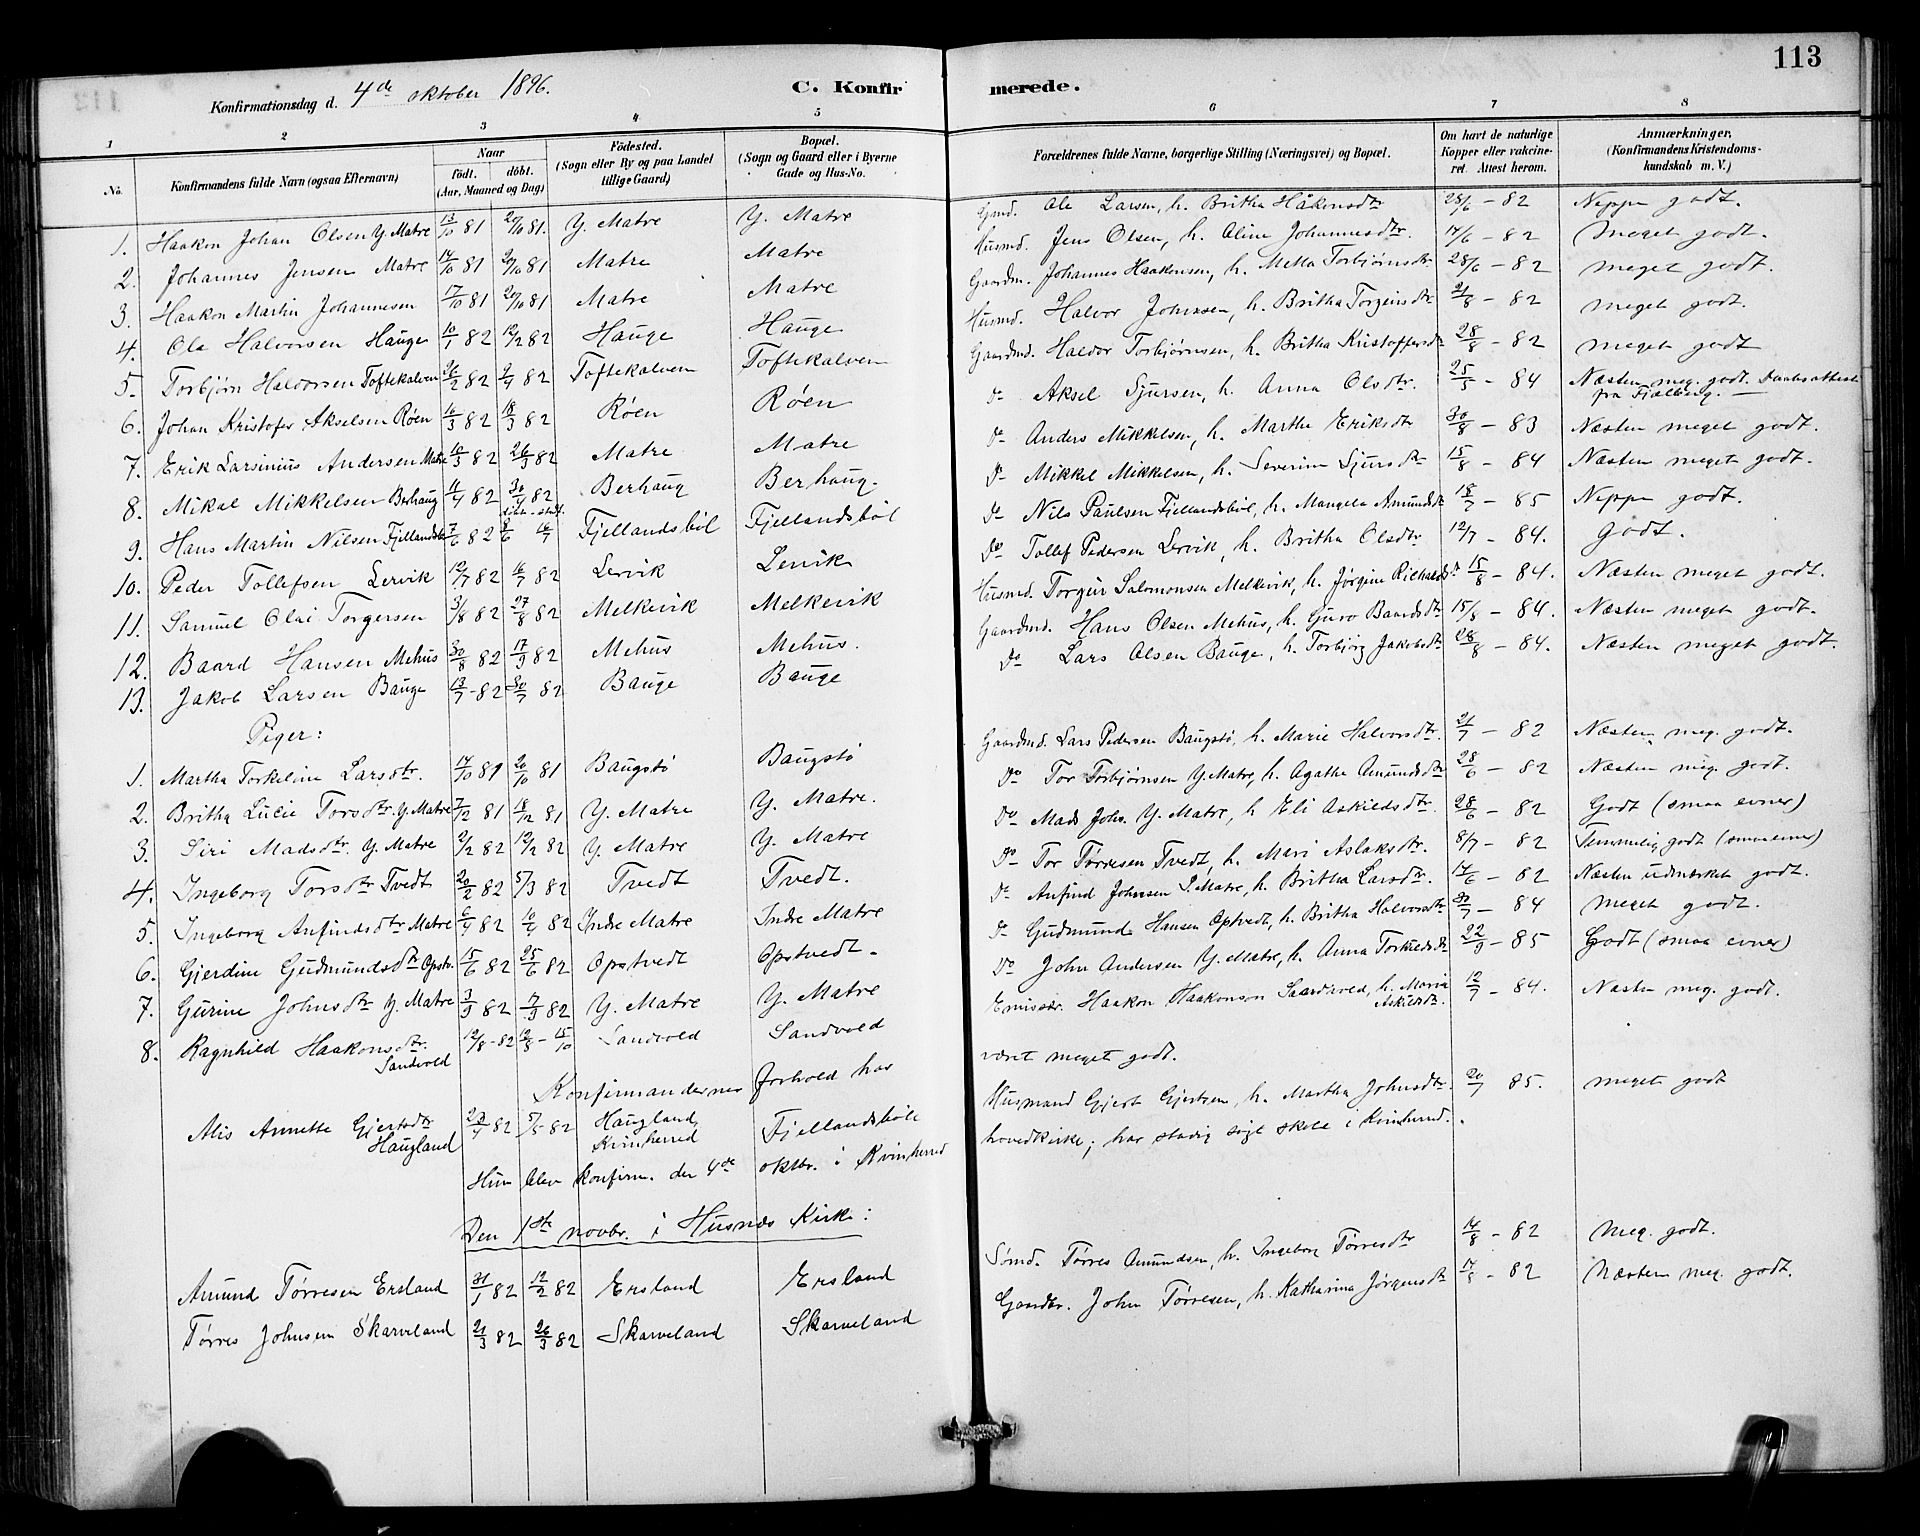 113
Konfirmationsdag d. 4de oktober 1896. C. Konfirmerede.
1 2 3 4 5 6 7 8
No. Konfirmandens fulde Navn (ogsaa Efternavn) Naar födt. döbt. (Aar, Maaned og Dag) Födested. (Sogn eller By og paa Landet tillige Gaard) Bopæl. (Sogn og Gaard eller i Byerne Gade og Hus-No. Forældrenes fulde Navne, borgerlige Stilling (Næringsvei) og Bopæl. Om havt de naturlige Kopper eller vakcineret. Attest herom. Anmærkninger. (Konfirmandens Kristendomskundskab m. V.)
1. Haakon Johan Olsen Y. Matre 13/10 81 20/10 81. Y. Matre Y. Matre Gmd. Ole Larsen, h. Britha Håkonsdtr 28/6 - 82 Neppe godt.
2. Johannes Jensen Matre 14/10 81 20/10 81 Matre Matre Husmd. Jens Olsen, h. Aline Johannesdtr. 17/6 - 82 Meget godt.
3. Haakon Martin Johannesen 17/10 81 20/10 81 Matre Matre Gaardm. Johannes Haakensen, h. Metta Torbjørnsdtr 28/6 - 82 meget godt.
4. Ole Halvorsen Hauge 10/1 82 12/2 82 Hauge Hauge Husmd. Halvor Johnsen, h. Britha Torgeirsdtr 21/8 - 82 meget godt.
5. Torbjörn Haldorsen Toftekalven 26/2 82 2/4 82 Toftekalven Toftekalven Gaardmd. Haldor Torbjørnsen, h. Britha Kristoffersdtr 28/8 - 82 meget godt
6. Johan Kristofer Akselsen Röen 10/3 82 18/3 82 Röen Röen Do Aksel Sjursen, h. Anna Olsdtr. 25/5 - 84 Næsten meg. godt. Daabsattest fra Fjælberg. —
7. Erik Larsinius Andersen Matre 10/3 82 26/3 82 Matre Matre Do Anders Mikkelsen, h. Martha Eriksdtr 30/8 - 83 Næsten meget godt.
8. Mikal Mikkelsen Berhaug 11/4 82 30/4 82 Berhaug Berhaug. Do Mikkel Mikkelsen, h. Severine Sjursdtr 15/8 - 84 Næsten meget godt.
9. Hans Martin Nilsen Fjellandsbö 7/6 82 8/6 16/7 Fjellandsböl Fjellandsböl Do Nils Paulsen Fjellandsböl, h. Mangela Amundsdtr 18/7 - 85 Neppe godt.
10. Peder Tollefsen Lervik 12/7 82 16/7 82 Lervik Lervik Do Tollef Pedersen Lervik, h. Britha Olsdtr 12/7 - 84. Godt.
11. Samuel Olai Torgersen 3/8 82 27/8 82 Melkevik Melkevik Husmd. Torgeir Salomonsen Melkevik, h. Jørgine Rikhalsdtr 15/8 - 84. Næsten meget godt.
12. Baard Hansen Mehus 30/8 82 17/9 82 Mehus Mehus. Gaardmd. Hans Olsen Mehus, h. Guro Baardsdtr 15/8 - 84. Næsten meget godt.
13. Jakob Larsen Bauge 13/7 - 82 30/7 82 Bauge Bauge Do Lars Olsen Bauge, h. Torbjörg Jakobsdtr 28/8 - 84. Næsten meget godt.
Piger:
1. Martha Torkeline Larsdtr. 14/10 81 20/10 81 Baugstø Baugstø Gaardmd. Lars Pedersen Baugstø, h. Marie Halvorsdtr. 21/7 - 82 Næsten meg. godt.
2. Britha Lucie Torsdtr. Y. Matre 7/12 81 18/12 81 Y. Matre Y. Matre. Do Tor Torbjørnsen Y. Matre, h. Agatha Amundsdtr 28/6 - 82 Næsten meg. godt.
3. Siri Madsdtr. Y. Matre 2/2 82 12/2 82 Y. Matre Y. Matre Do Mads Johs. Y. Matre, h. Eli Askildsdtr. 28/6 - 82 Godt (smaa evner)
4. Ingeborg Torsdtr Tvedt 20/2 82 5/3 82 Tvedt Tvedt. Do Tor Tørresen Tvedt, h. Mari Aslaksdtr. 8/7 - 82 Temmelig godt (smaa evner)
5. Ingeborg Anfindsdtr Matre 6/4 82 10/4 82 Indre Matre Indre Matre Do Anfind Johnsen I. Matre, h. Britha Larsdtr. 17/6 - 82 Næsten udmerket godt.
6. Gjerdine Gudmundsdtr Opstv. 15/6 82 25/6 82 Opstvedt Opstvedt. Do Gudmund Hansen Optvedt, h. Britha Halvorsdtr 30/7 - 84 Meget godt.
7. Gurine Johnsdtr Y. Matre 3/9 82 17/9 82 Y. Matre Y. Matre Do John Andersen Y. Matre, h. Anna Torkildsdtr 22/9 - 85 Godt (smaa evner)
8. Ragnhild Haakonsdtr. Sandvold 12/8 - 82 12/8 - 15/10 Sandvold Sandvold Emissær. Haakon Haakonson Saardvold, h. Maria Askildsdtr. 12/7 - 84. Næsten meg. godt.
Konfirmandernes forhold har været meget godt.
Alis Annette Gjertsdtr Haugland 23/4 82 5/5 - 82 Haugland, Kvinherred Fjellandsböle Husmand Gjert Gjertsen, h. Martha Johnsdtr. 20/7 85. meget godt
Hun blev konfirm. den 4de oktbr. i Kvinherred hovedkirke; har stadig søgt skole i Kvinherred.
Den 1ste novbr. i Husnes Kirke:
Amund Tørresen Ersland 31/1 82 12/2 82 Ersland Ersland Sømd. Tørres Amundsen, h. Ingeborg Tørresdtr 14/8 - 82 Meg. godt.
Tørres Johnsen Skarveland 21/3 82 26/3 82 Skarveland Skarveland Gaardbr. John Tørresen, h. Katharina Jørgensdtr 17/8 - 82 Næsten meg. godt.